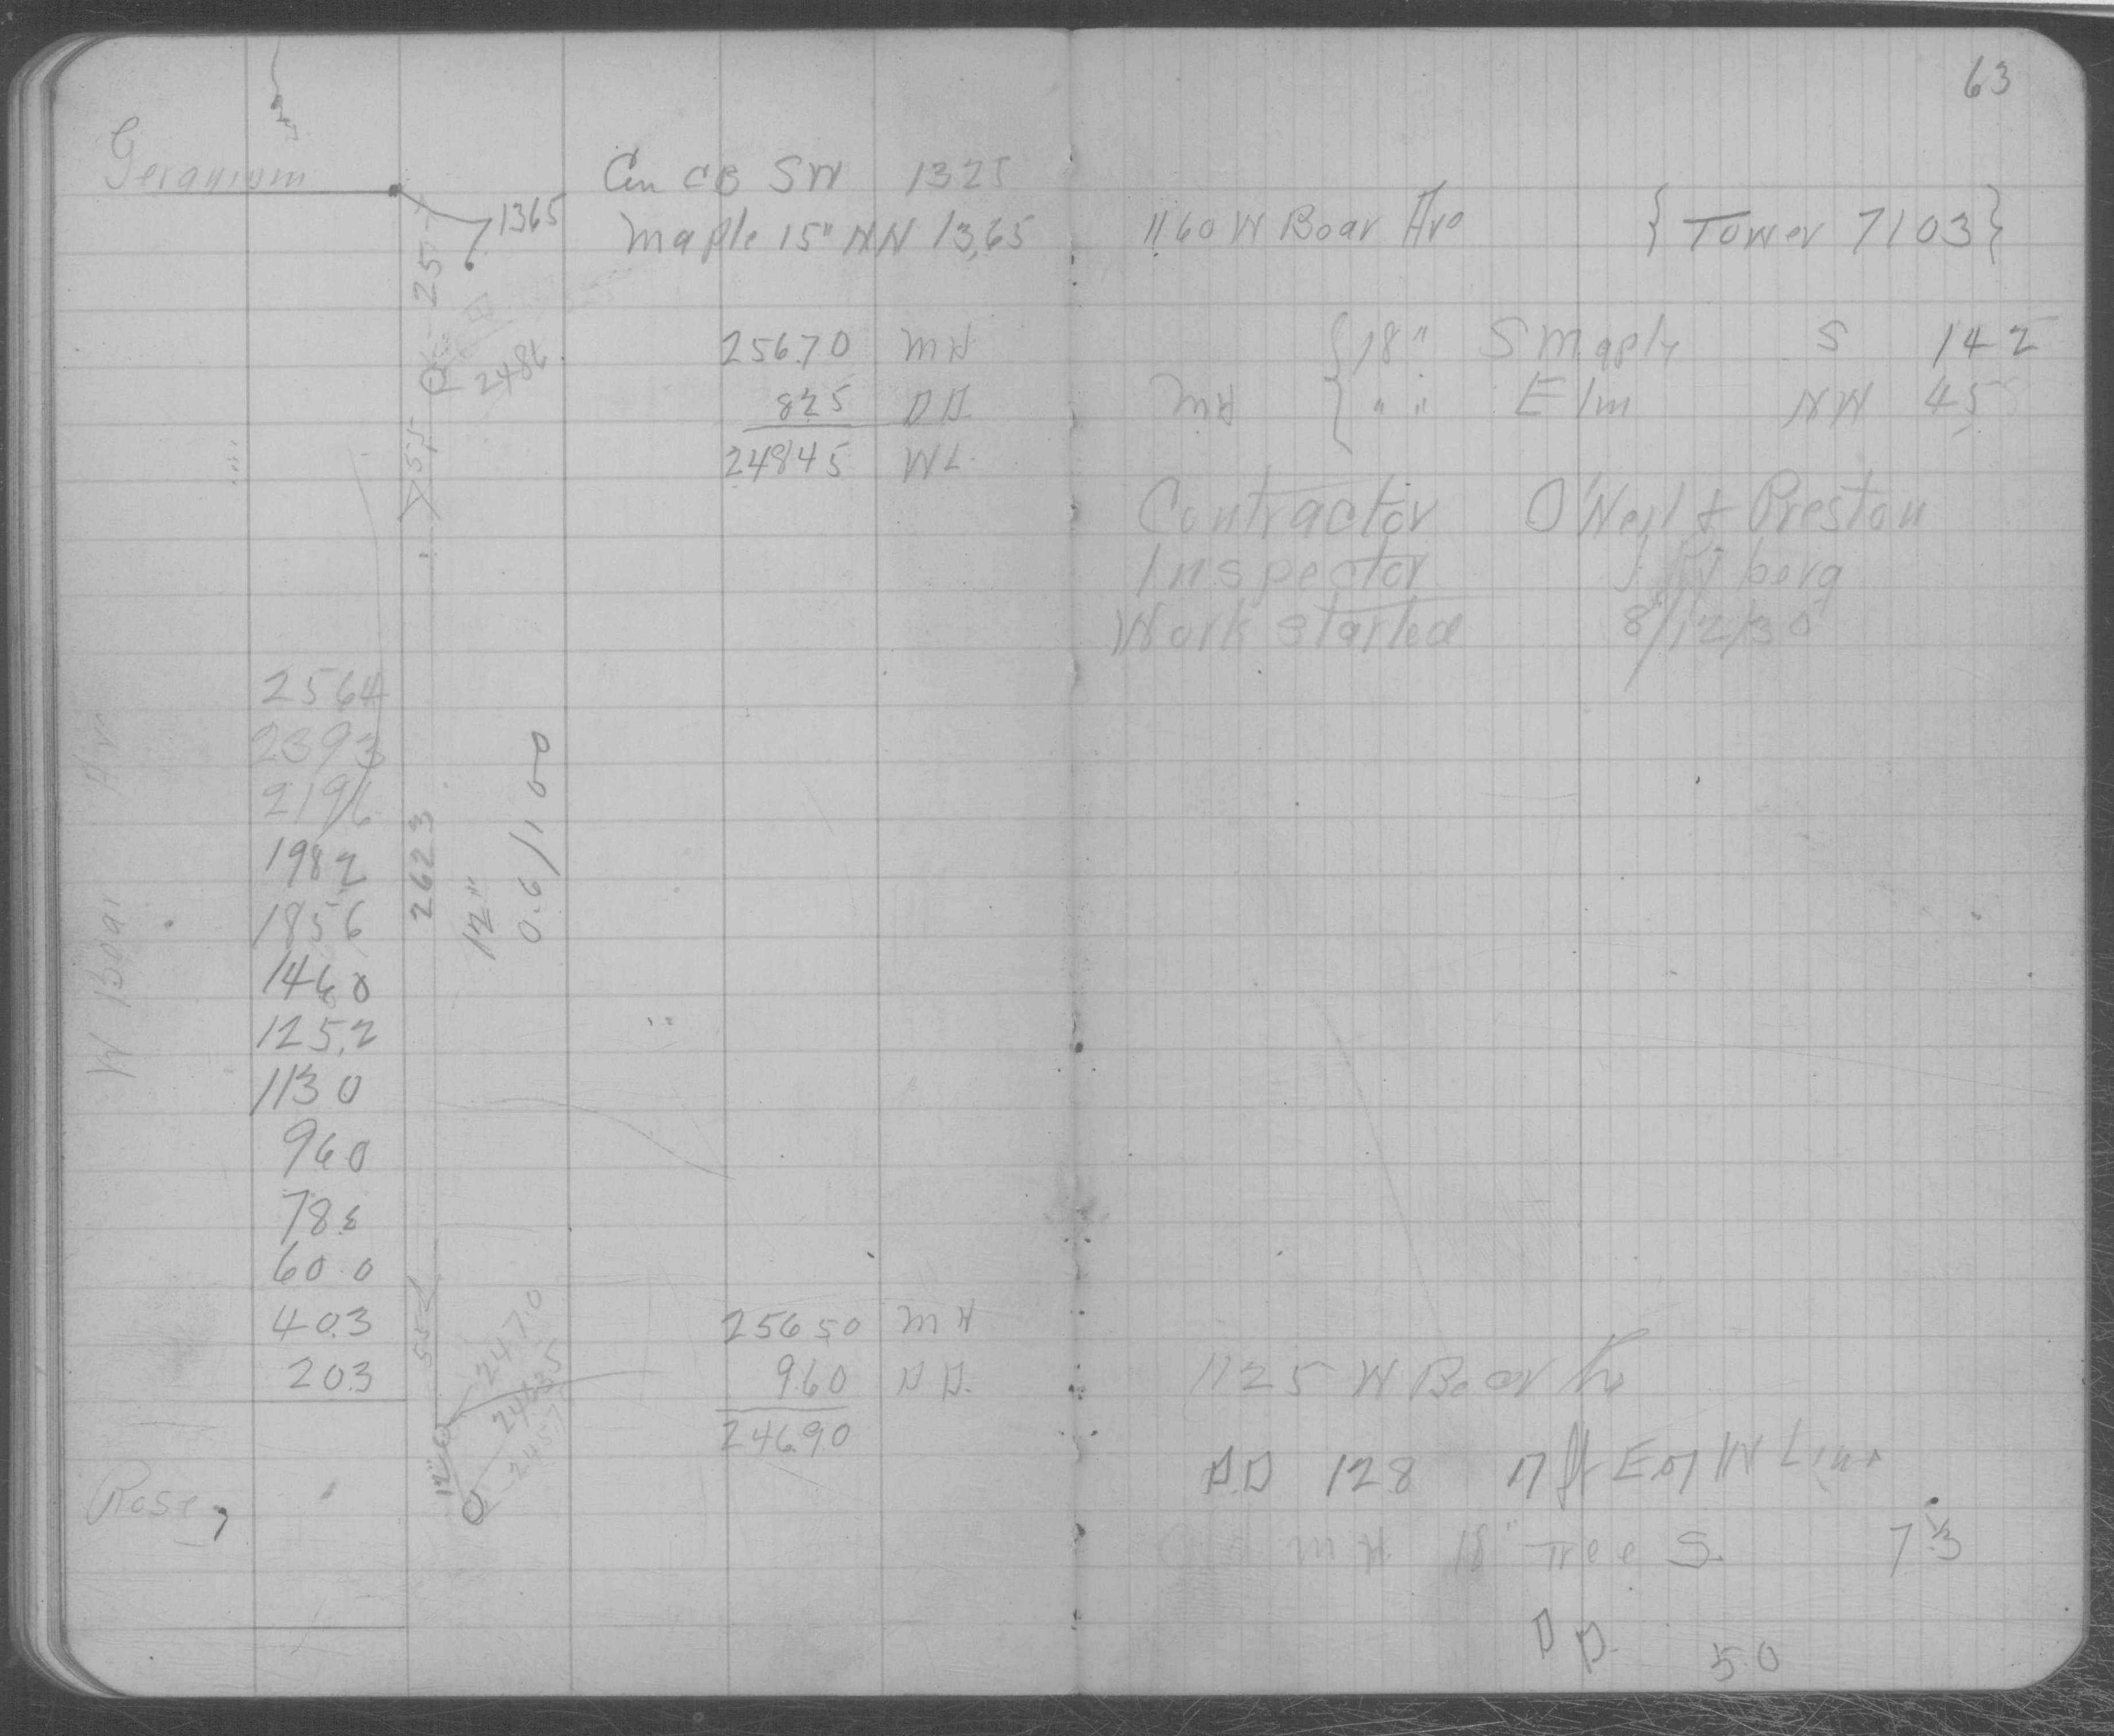 63
Geranium
1365
Cen CB SW 1325
Maple 15" NW 13,65
25
2486
55
25670 MH
825 DD.
24845 WL.
2564
2393
2196
1982
1856
1460
125.2
1130
960
78.6
60 0
403
203
W Boar Av
2623
12"
0.6/100
55
2470
12"
25650 MH
960 DD.
24690
Rose,
1160 W Boar Ave {Tower 7103}
18" S Maple S 142
MH " " Elm NW 45
Contractor O'Neil & Preston
Inspector
Work started 8/12/30
1125 W Bear Av
DD 128 17 ft E of W Line
MH 18" Tree S. 73
DD. 50